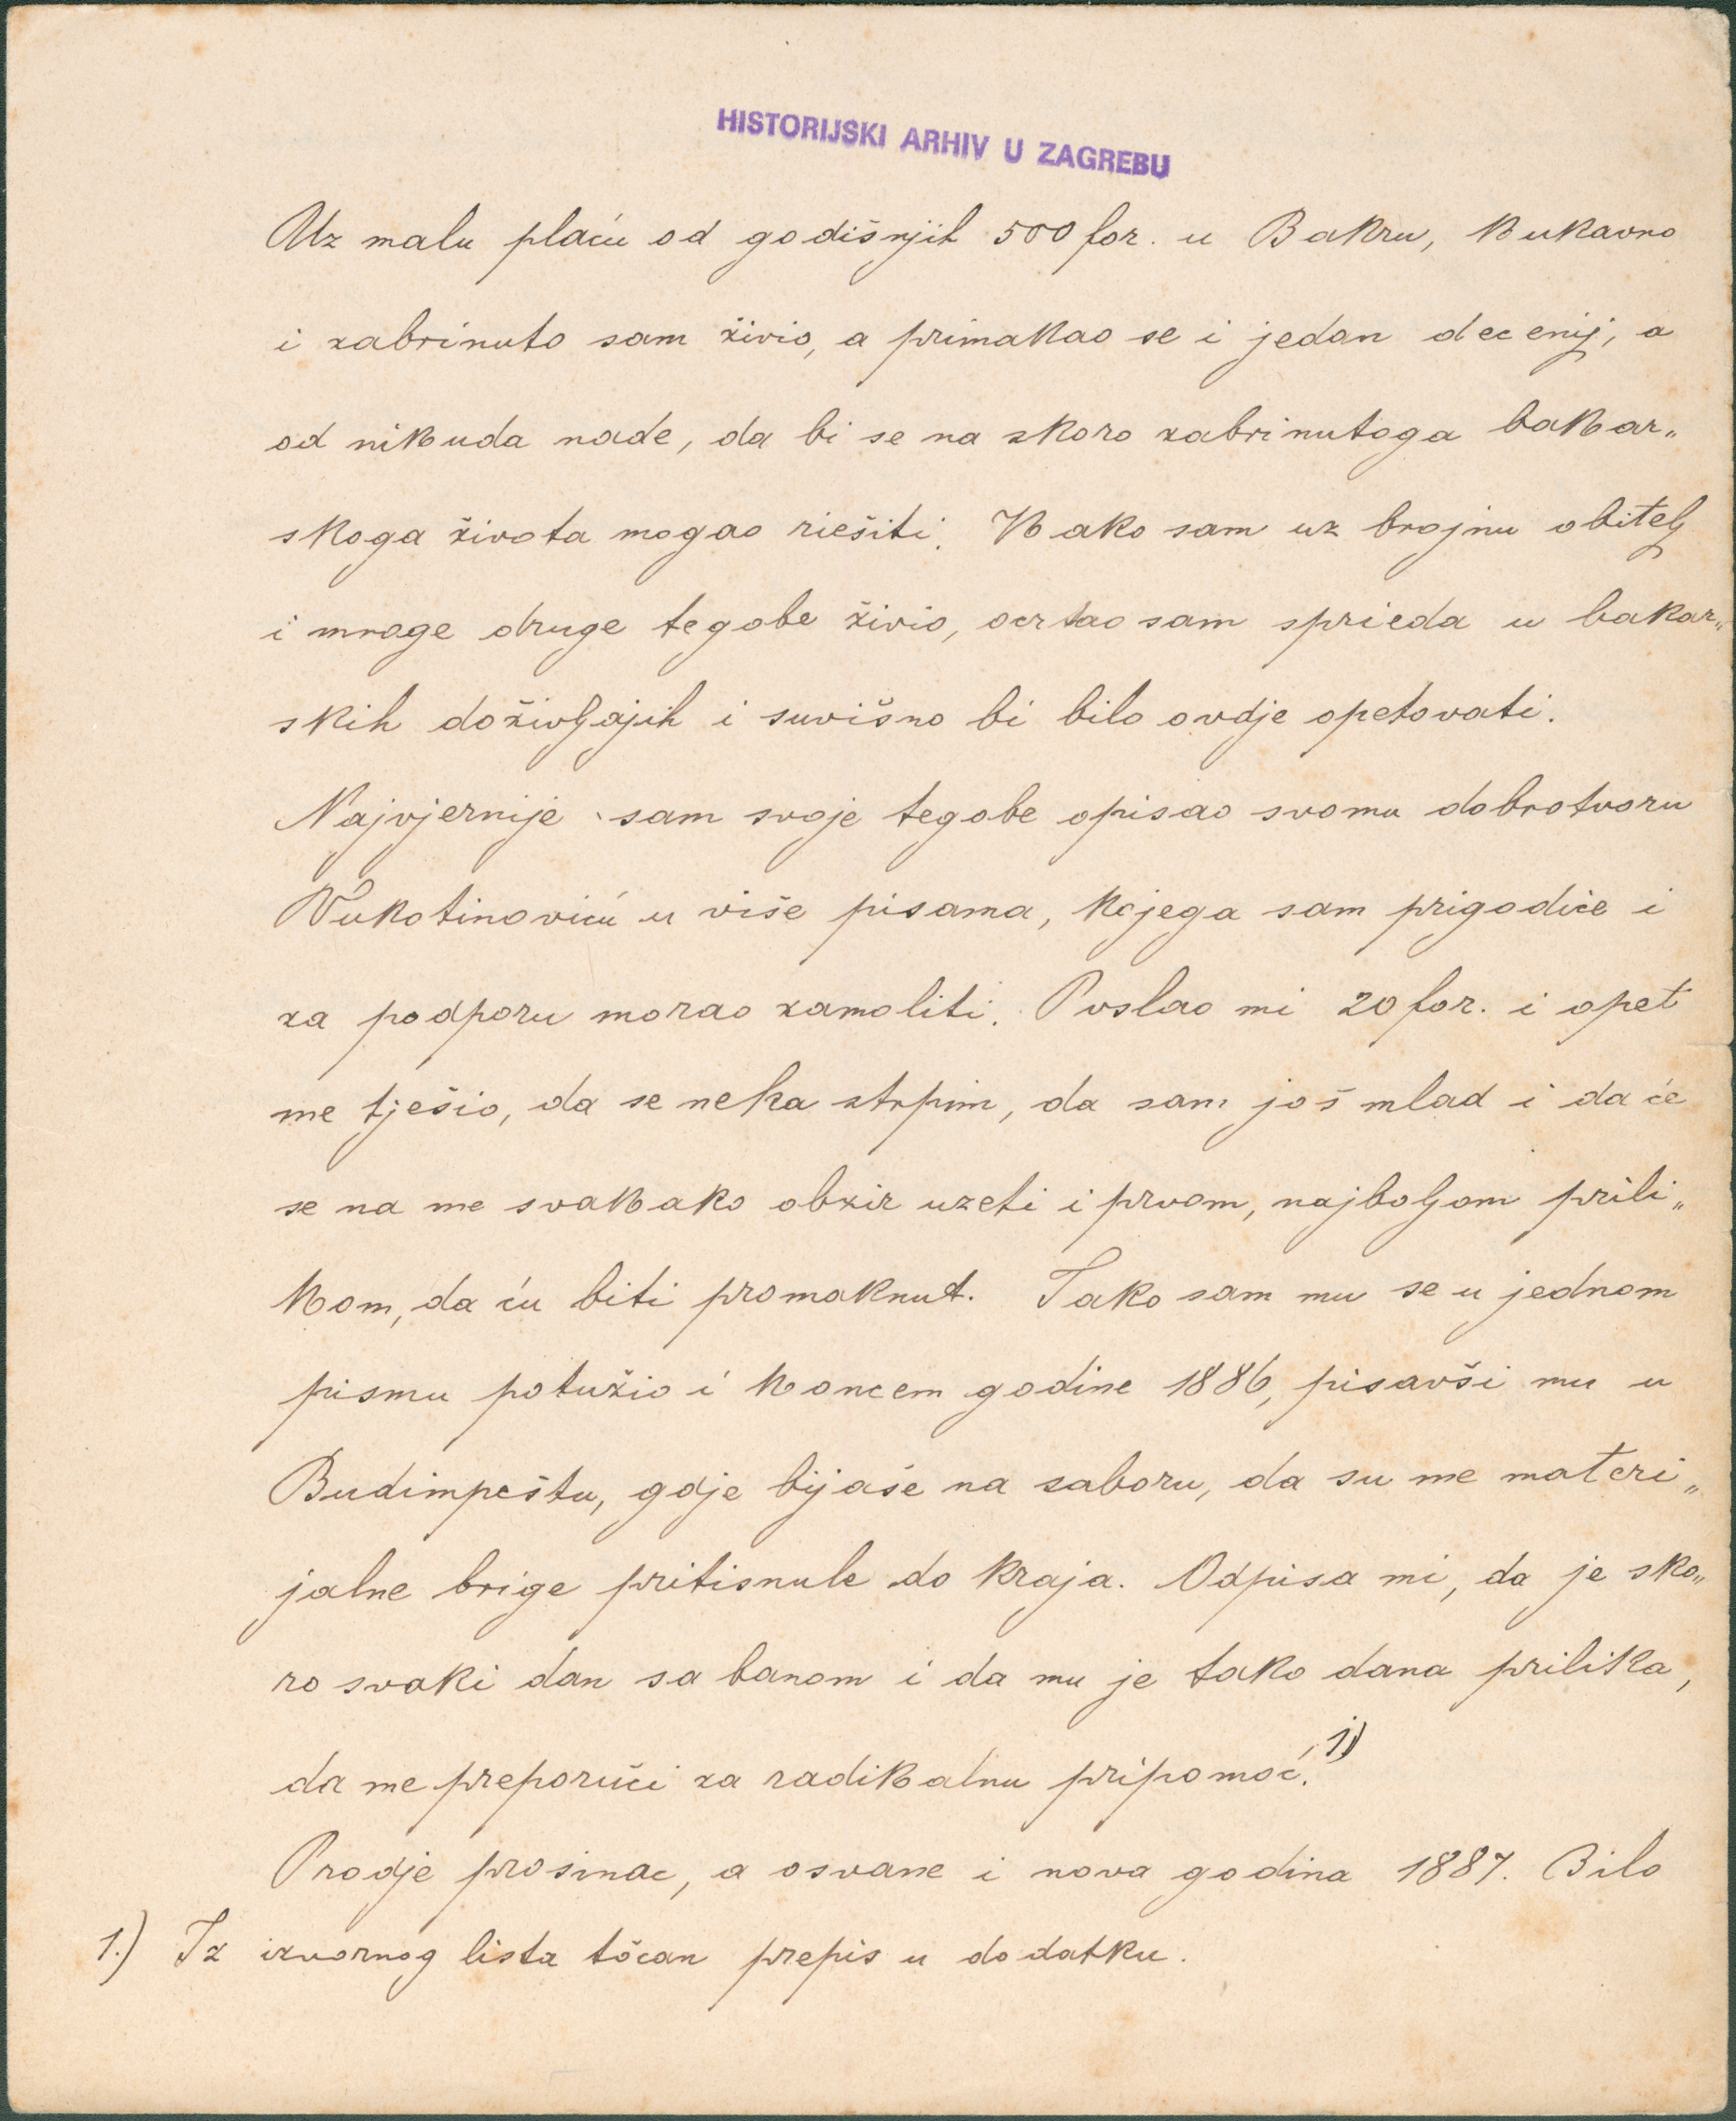 HISTORIJSKI ARHIV U ZAGREBU
Uz malu plaću od godišnjih 500 for. u Bakru, kukavno
i zabrinuto sam živio, a primakao se i jedan decenij, a
od nikuda nade, da bi se na skoro zabrinutoga bakar„
skoga života mogao riešiti. Kako sam uz brojnu obitelj
i mnoge druge tegobe živio, ocrtao sam sprieda u bakar„
skih doživljajih i suvišno bi bilo ovdje opetovati.
Najvjernije sam svoje tegobe opisao svomu dobrotvoru
Vukotinoviću u više pisama, kojega sam prigodice i
za podporu morao zamoliti. Poslao mi 20 for. i opet
me tješio, da se neka strpim, da sam još mlad i da će
se na me svakako obzir uzeti i prvom, najboljom prili„
kom, da ću biti promaknut. Tako sam mu se u jednom
pismu potužio i koncem godine 1886, pisavši mu u
Budimpeštu, gdje bijaše na saboru, da su me materi„
jalne brige pritisnule do kraja. Odpisa mi, da je sko„
ro svaki dan sa banom i da mu je tako dana prilika,
da me preporuči za radikalnu pripomoć. 1)
Prodje prosinac, a osvane i nova godina 1887. Bilo
1.) Iz izvornog lista točan prepis u dodatku.